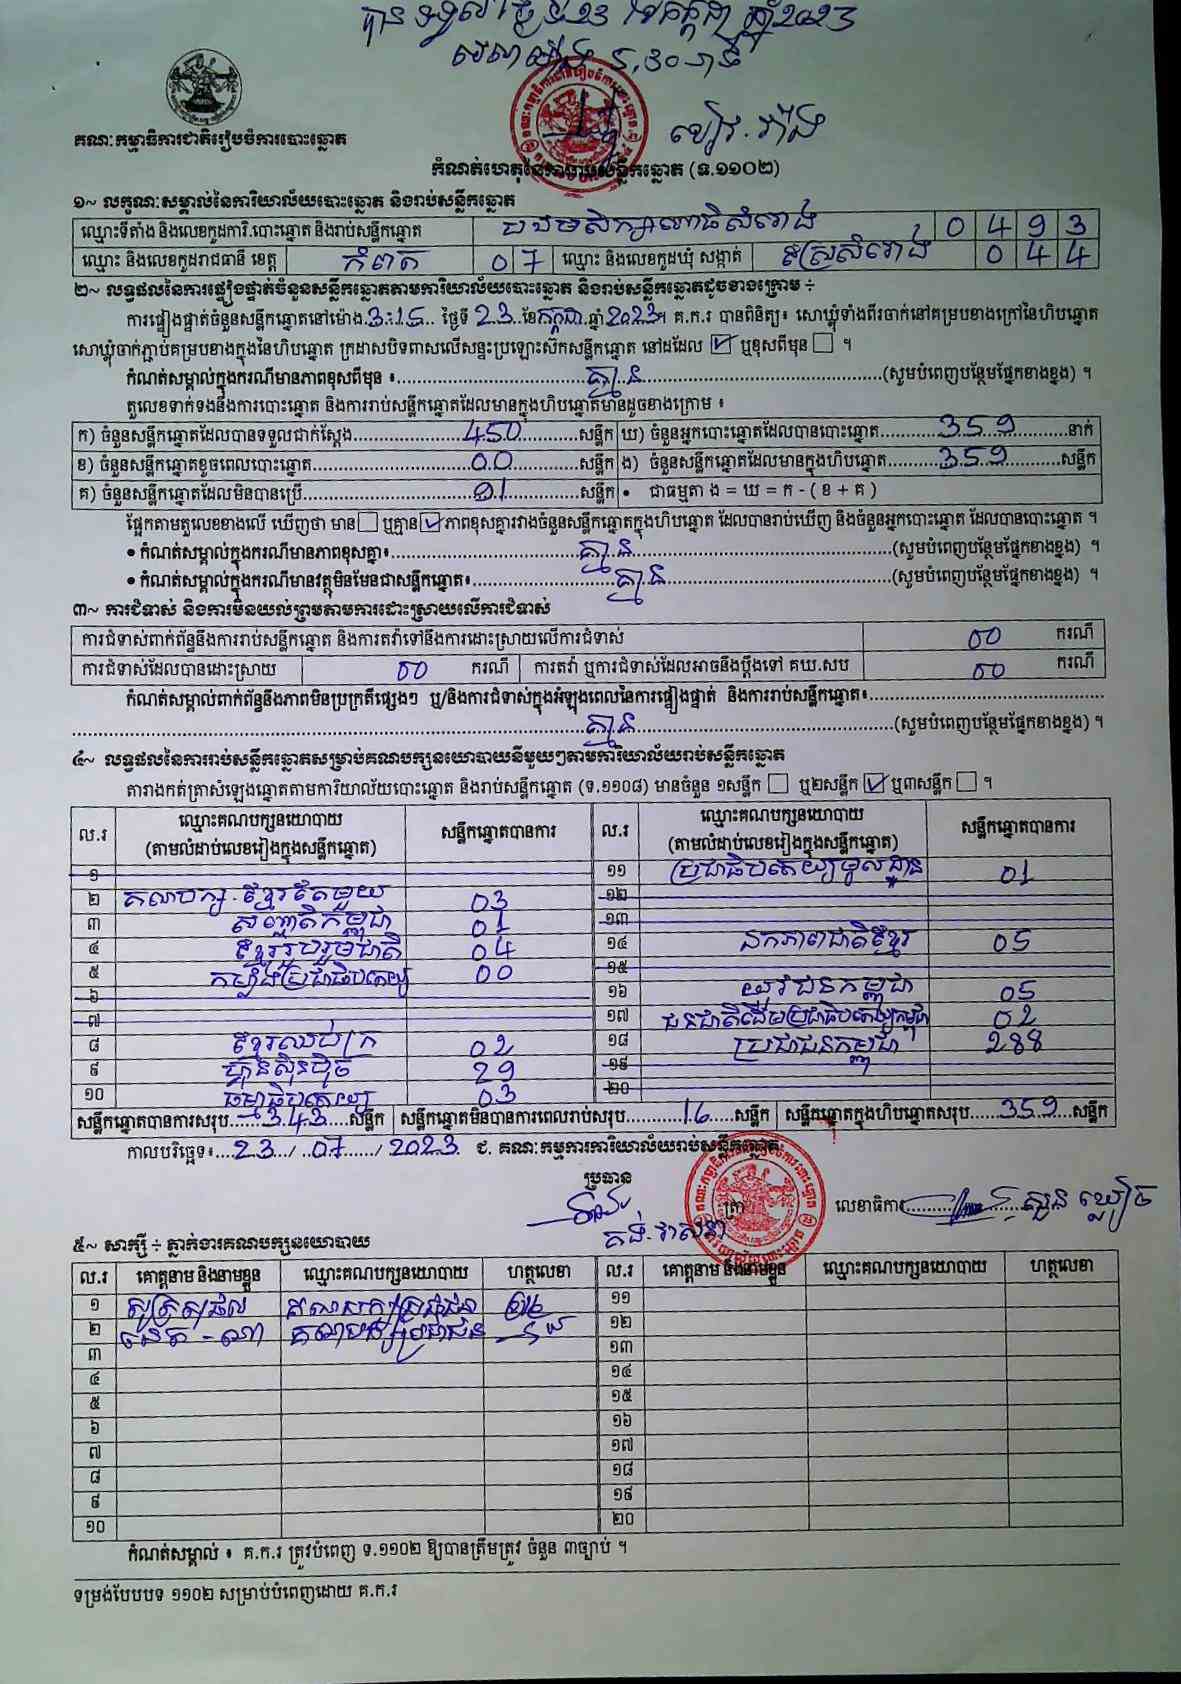 បានទទួលថ្ងៃទី23 ខែកក្កដា ឆ្នាំ2023
វេលាម៉ោង 5:30 នាទី
គណៈកម្មាធិការជាតិរៀបចំការបោះឆ្នោត
កំណត់ហេតុនៃការរាប់សន្លឹកឆ្នោត (ទ.១១០២)
១~ លក្ខណៈសម្គាល់នៃការិយាល័យបោះឆ្នោត និងរាប់សន្លឹកឆ្នោត
ឈ្មោះទីតាំង និងលេខកូដការិ.បោះឆ្នោត និងរាប់សន្លឹកឆ្នោត បឋមសិក្សាពោធិសំរោង 0 4 9 3
ឈ្មោះ និងលេខកូដរាជធានី ខេត្ត កំពត 0 7 ឈ្មោះ និងលេខកូដឃុំ សង្កាត់ ស្រែសំរោង 0 4 4
២~ លទ្ធផលនៃការផ្ទៀងផ្ទាត់ចំនួនសន្លឹកឆ្នោតតាមការិយាល័យបោះឆ្នោត និងរាប់សន្លឹកឆ្នោតដូចខាងក្រោម ÷
ការផ្ទៀងផ្ទាត់ចំនួនសន្លឹកឆ្នោតនៅម៉ោង 3:15 ថ្ងៃទី 23 ខែកក្កដា ឆ្នាំ2023។ គ.ក.រ បានពិនិត្យ៖ សោឃ្លុំទាំងពីរចាក់នៅគម្របខាងក្រៅនៃហិបឆ្នោត
សោឃ្លុំចាក់ភ្ជាប់គម្របខាងក្នុងនៃហិបឆ្នោត ក្រដាសបិទពាសលើសន្ទះប្រឡោះស៊កសន្លឹកឆ្នោត នៅដដែល ☑ ឬខុសពីមុន ☐ ។
កំណត់សម្គាល់ក្នុងករណីមានភាពខុសពីមុន ៖ គ្មាន (សូមបំពេញបន្ថែមផ្នែកខាងខ្នង) ។
តួលេខទាក់ទងនឹងការបោះឆ្នោត និងការរាប់សន្លឹកឆ្នោតដែលមានក្នុងហិបឆ្នោតមានដូចខាងក្រោម ៖
ក) ចំនួនសន្លឹកឆ្នោតដែលបានទទួលជាក់ស្តែង 450 សន្លឹក ឃ) ចំនួនអ្នកបោះឆ្នោតដែលបានបោះឆ្នោត 359 នាក់
ខ) ចំនួនសន្លឹកឆ្នោតខូចពេលបោះឆ្នោត 00 សន្លឹក ង) ចំនួនសន្លឹកឆ្នោតដែលមានក្នុងហិបឆ្នោត 359 សន្លឹក
គ) ចំនួនសន្លឹកឆ្នោតដែលមិនបានប្រើ 91 សន្លឹក • ជាធម្មតា ង = ឃ = ក - ( ខ + គ )
ផ្អែកតាមតួលេខខាងលើ ឃើញថា មាន ☐ ឬគ្មាន ☑ ភាពខុសគ្នារវាងចំនួនសន្លឹកឆ្នោតក្នុងហិបឆ្នោត ដែលបានរាប់ឃើញ និងចំនួនអ្នកបោះឆ្នោត ដែលបានបោះឆ្នោត ។
• កំណត់សម្គាល់ក្នុងករណីមានភាពខុសគ្នា៖ គ្មាន (សូមបំពេញបន្ថែមផ្នែកខាងខ្នង) ។
• កំណត់សម្គាល់ក្នុងករណីមានវត្ថុមិនមែនជាសន្លឹកឆ្នោត៖ គ្មាន (សូមបំពេញបន្ថែមផ្នែកខាងខ្នង) ។
៣~ ការជំទាស់ និងការមិនយល់ព្រមតាមការដោះស្រាយលើការជំទាស់
ការជំទាស់ពាក់ព័ន្ធនឹងការរាប់សន្លឹកឆ្នោត និងការតវ៉ាទៅនឹងការដោះស្រាយលើការជំទាស់ 00 ករណី
ការជំទាស់ដែលបានដោះស្រាយ 00 ករណី ការតវ៉ា ឬការជំទាស់ដែលអាចនឹងប្តឹងទៅ គឃ.សប 00 ករណី
កំណត់សម្គាល់ពាក់ព័ន្ធនឹងភាពមិនប្រក្រតីផ្សេងៗ ឬ/និងការជំទាស់ក្នុងអំឡុងពេលនៃការផ្ទៀងផ្ទាត់ និងការរាប់សន្លឹកឆ្នោត៖
គ្មាន (សូមបំពេញបន្ថែមផ្នែកខាងខ្នង) ។
៤~ លទ្ធផលនៃការរាប់សន្លឹកឆ្នោតសម្រាប់គណបក្សនយោបាយនីមួយៗតាមការិយាល័យរាប់សន្លឹកឆ្នោត
តារាងកត់ត្រាសំឡេងឆ្នោតតាមការិយាល័យបោះឆ្នោត និងរាប់សន្លឹកឆ្នោត (ទ.១១០៨) មានចំនួន ១សន្លឹក ☐ ឬ២សន្លឹក ☑ ឬ៣សន្លឹក ☐ ។
ល.រ ឈ្មោះគណបក្សនយោបាយ (តាមលំដាប់លេខរៀងក្នុងសន្លឹកឆ្នោត) សន្លឹកឆ្នោតបានការ ល.រ ឈ្មោះគណបក្សនយោបាយ (តាមលំដាប់លេខរៀងក្នុងសន្លឹកឆ្នោត) សន្លឹកឆ្នោតបានការ
១ ១១ ប្រជាធិបតេយ្យមូលដ្ឋាន 01
២ គណបក្ស ខ្មែរតែមួយ 03 ១២
៣ សញ្ជាតិកម្ពុជា 01 ១៣
៤ ខ្មែររួបរួមជាតិ 04 ១៤ ឯកភាពជាតិខ្មែរ 05
៥ កម្លាំងប្រជាធិបតេយ្យ 00 ១៥
៦ ១៦ យុវជនកម្ពុជា 05
៧ ១៧ ជនជាតិដើមប្រជាធិបតេយ្យកម្ពុជា 02
៨ ខ្មែរឈប់ក្រ 02 ១៨ ប្រជាជនកម្ពុជា 288
៩ ហ៊្វុនស៊ិនប៉ិច 29 ១៩
១០ ធម្មាធិបតេយ្យ 03 ២០
សន្លឹកឆ្នោតបានការសរុប 343 សន្លឹក សន្លឹកឆ្នោតមិនបានការពេលរាប់សរុប 16 សន្លឹក សន្លឹកឆ្នោតក្នុងហិបឆ្នោតសរុប 359 សន្លឹក
កាលបរិច្ឆេទ៖ 23 / 07 / 2023 ជ. គណៈកម្មការការិយាល័យរាប់សន្លឹកឆ្នោត
ប្រធាន
ត្រា លេខាធិការ សួន ឃ្លៀច
គង់ វាសនា
៥~ សាក្សី ÷ ភ្នាក់ងារគណបក្សនយោបាយ
ល.រ គោត្តនាម និងនាមខ្លួន ឈ្មោះគណបក្សនយោបាយ ហត្ថលេខា ល.រ គោត្តនាម និងនាមខ្លួន ឈ្មោះគណបក្សនយោបាយ ហត្ថលេខា
១ គណបក្សប្រជាជន ១១
២ គណបក្សប្រជាជន ១២
៣ ១៣
៤ ១៤
៥ ១៥
៦ ១៦
៧ ១៧
៨ ១៨
៩ ១៩
១០ ២០
កំណត់សម្គាល់ ៖ គ.ក.រ ត្រូវបំពេញ ទ.១១០២ ឱ្យបានត្រឹមត្រូវ ចំនួន ៣ច្បាប់ ។
ទម្រង់បែបបទ ១១០២ សម្រាប់បំពេញដោយ គ.ក.រ